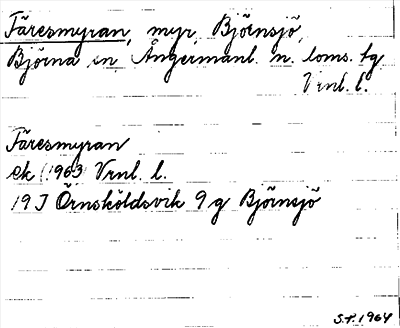 Färesmyran, myr, Björnsjö,
Björna sn, Ångermanl. n. loms. tg
Vrnl. l.
Färesmyran
ek (1963 Vrnl. l.
19 J Örnsköldsvik 9 g Björnsjö
S.P. 1964